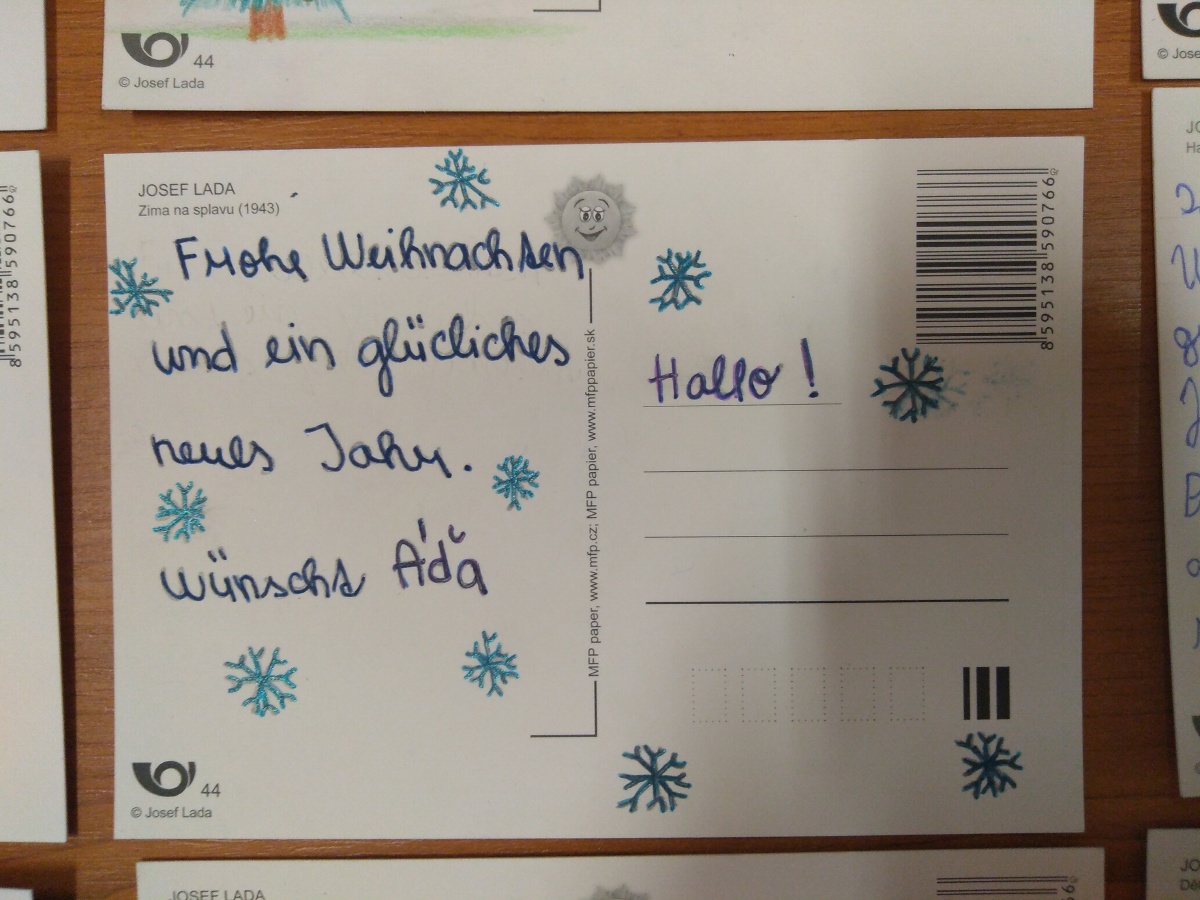 44
© Josef Lada
© Jose
JOSEF LADA
Zima na splavu (1943)
Frohe Weihnachten
und ein glücliches
neues Jahr.
wünscht Áďa
44
© Josef Lada
MFP paper, www.mfp.cz; MFP papier, www.mfppapier.sk
Hallo !
8595138 590766
8595138 590766
JOSEF LADA